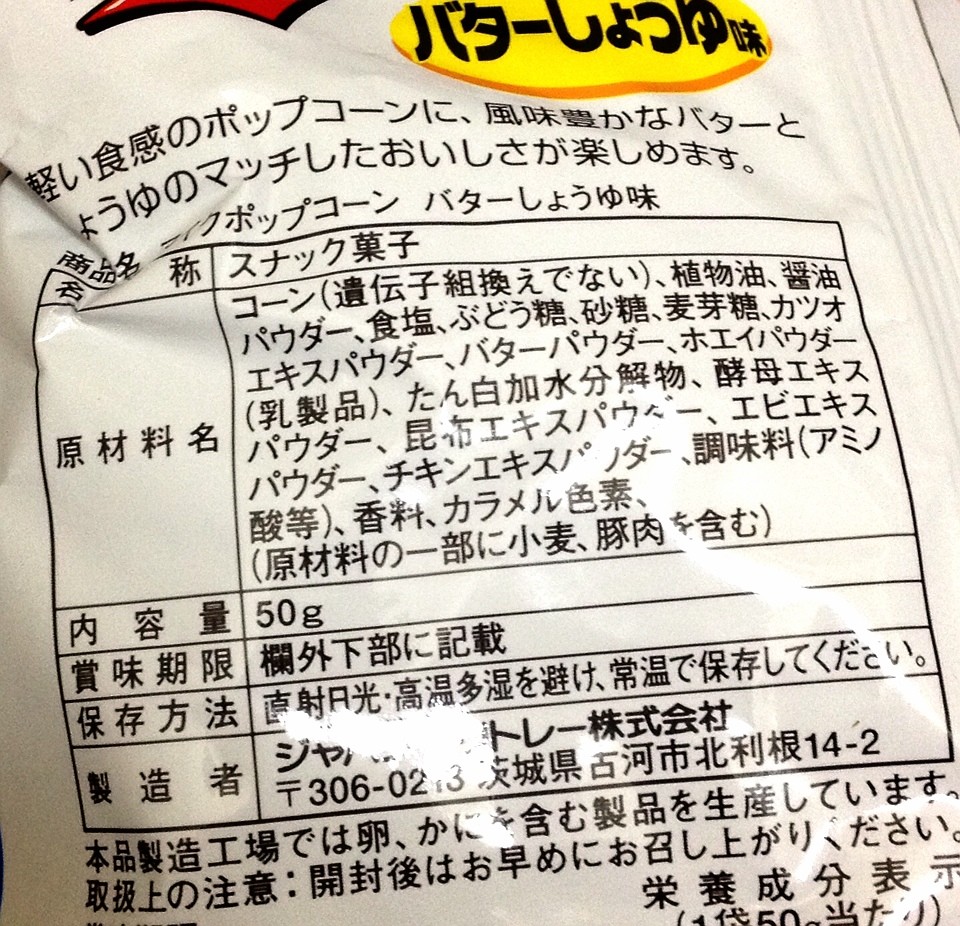 バターしょうゆ味
軽い食感のポップコーンに、風味豊かなバターと
ょうゆのマッチしたおいしさが楽しめます。
商品名 クポップコーン バターしょうゆ味
名 称 スナック菓子
原材料名 コーン(遺伝子組換えでない)、植物油、醤油
パウダー、食塩、ぶどう糖、砂糖、麦芽糖、カツオ
エキスパウダー、バターパウダー、ホエイパウダー
(乳製品)、たん白加水分解物、酵母エキス
パウダー、昆布エキスパウダー、エビエキス
パウダー、チキンエキスパウダー、調味料(アミノ
酸等)、香料、カラメル色素、
(原材料の一部に小麦、豚肉を含む)
内容量 50g
賞味期限 欄外下部に記載
保存方法 直射日光・高温多湿を避け、常温で保存してください。
製造者 トレー株式会社
〒306-0213 茨城県古河市北利根14-2
本品製造工場では卵、かにを含む製品を生産しています。
取扱上の注意:開封後はお早めにお召し上がりください。
栄養成分表示
(1袋50g当たり)